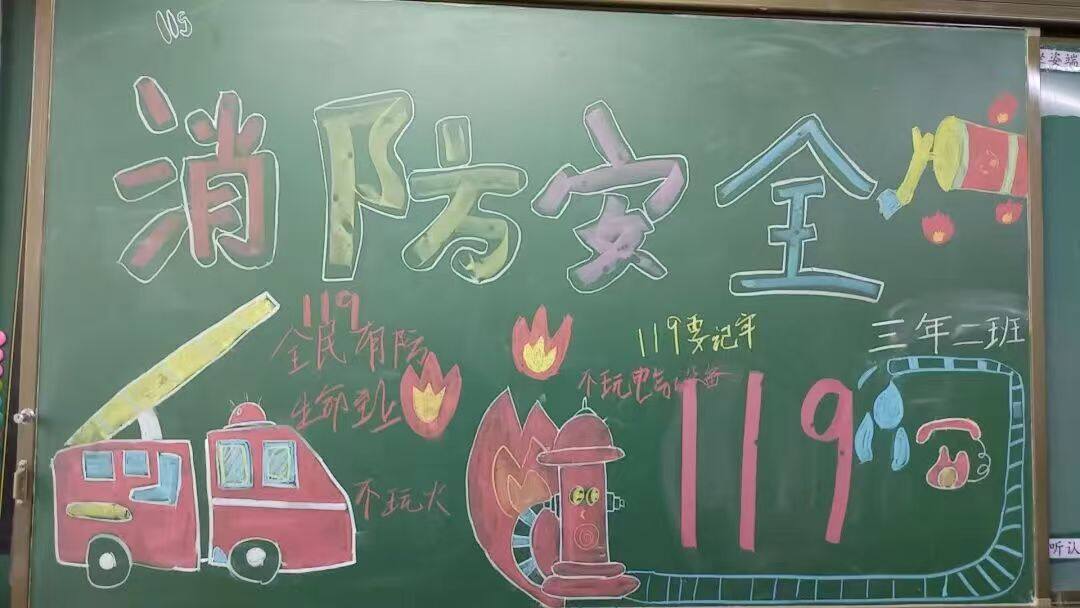 消防安全
119
全民有防
生命
不玩火
119要记牢
不玩电气设备
119
三年二班
姿端
听认